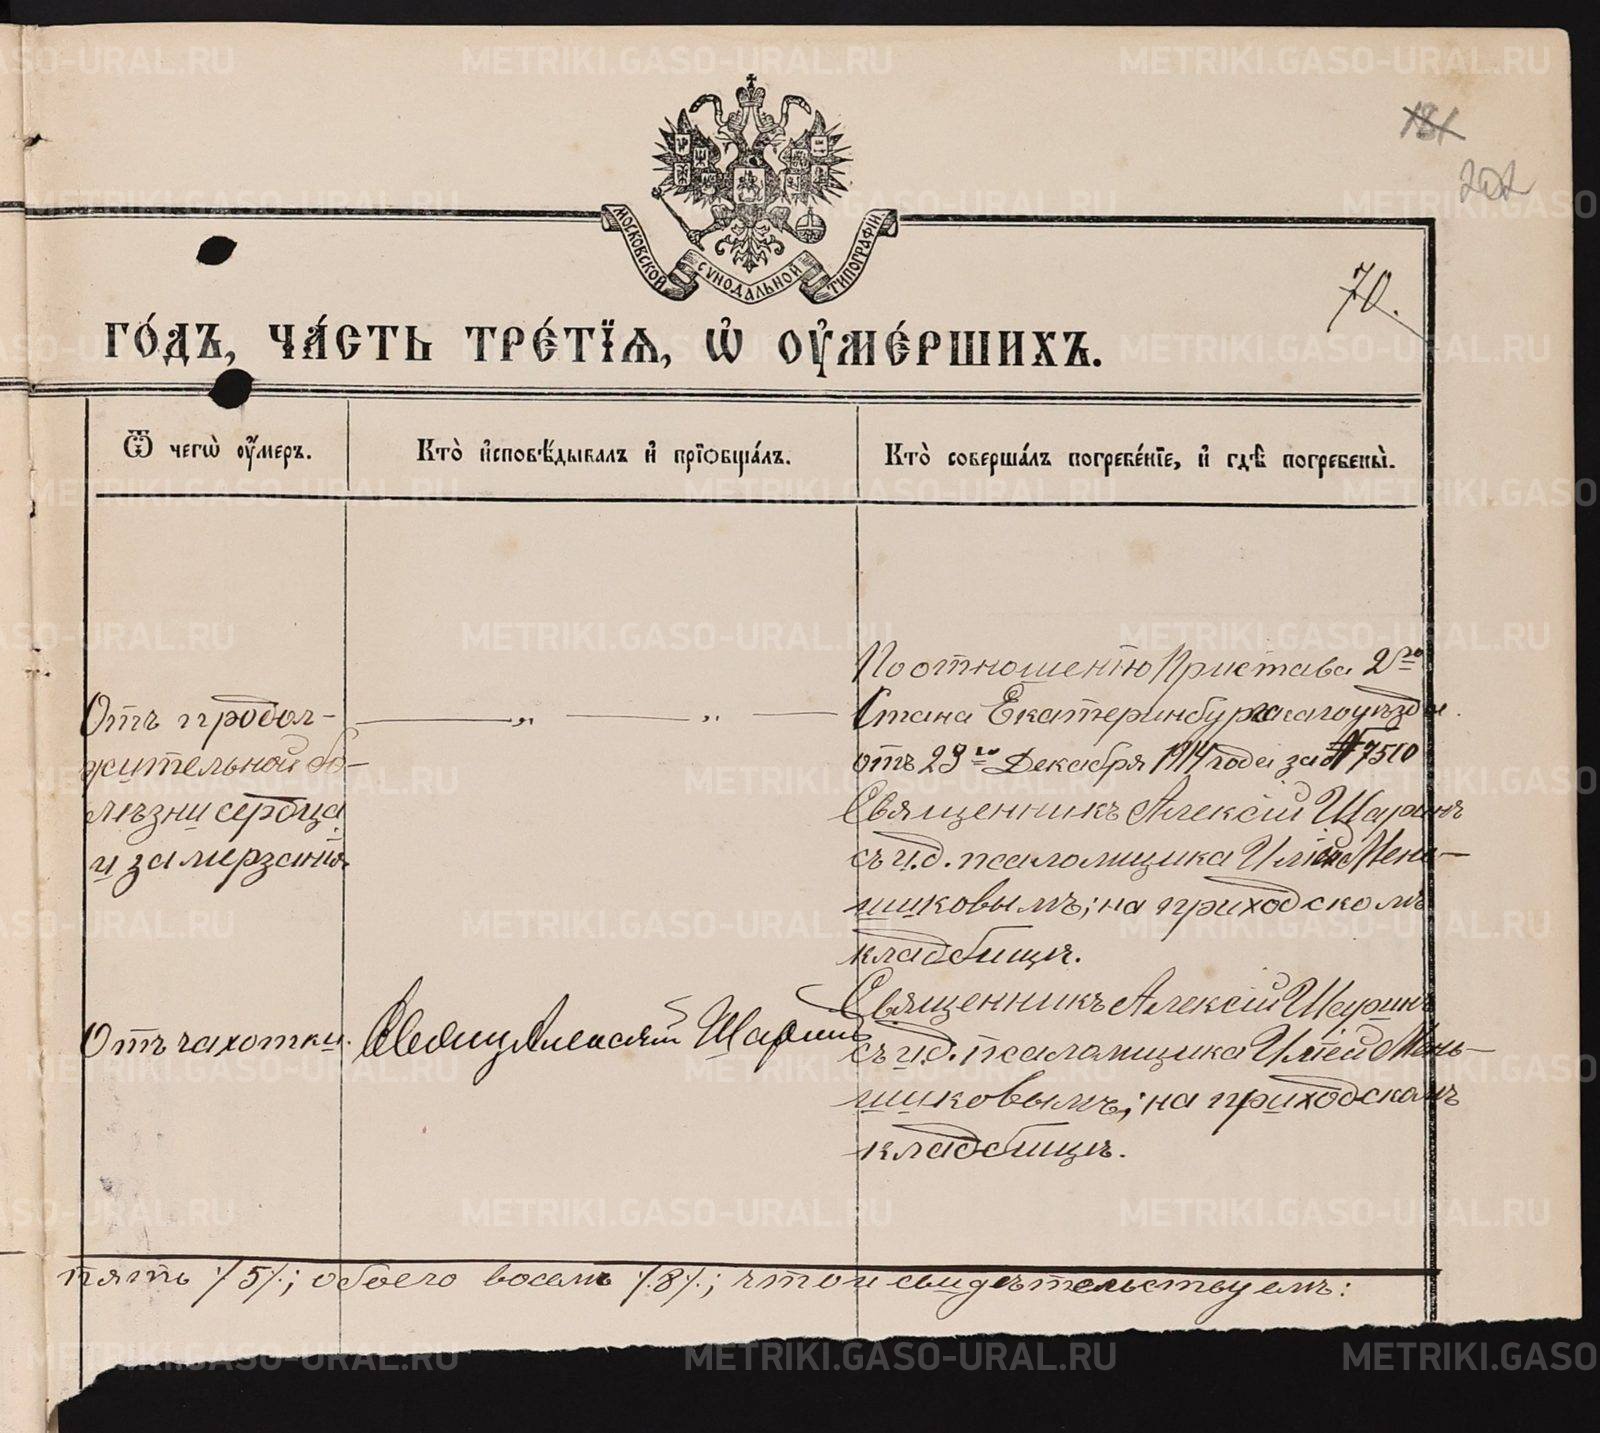 181
202
МОСКОВСКОЙ СУНОДАЛЬНОЙ ТИПОГРАФІИ
70.
ГО́ДЪ, ЧА́СТЬ ТРЕ́ТЇѦ, Ѡ҆ ОУ҆МЕ́РШИХЪ.
Ѿ чегѡ̀ оу҆́меръ.
Кто̀ и҆сповѣ́дывалъ и҆ прїѡбща́лъ.
Кто̀ соверша́лъ погребе́нїе, и҆ гдѣ̀ погребены̀.
Отъ продол-
жительной бо-
лѣзни сердца
и замерзанія.
— „ — „ —
По отношенію Пристава 2го
Стана Екатеринбургскаго уѣзда
отъ 29го Декабря 1914 года за № 7510
Священникъ Алексій Шаринъ
съ и.д. псаломщика Иліей Мень-
шиковымъ; на приходскомъ
кладбищѣ.
Отъ чахотки.
Священ. Алексій Шаринъ
Священникъ Алексій Шаринъ
съ и.д. псаломщика Иліей Мень-
шиковымъ; на приходскомъ
кладбищѣ.
пять /5/.; обоего восемь /.8/.; что и свидѣтельствуемъ:
METRIKI.GASO-URAL.RU